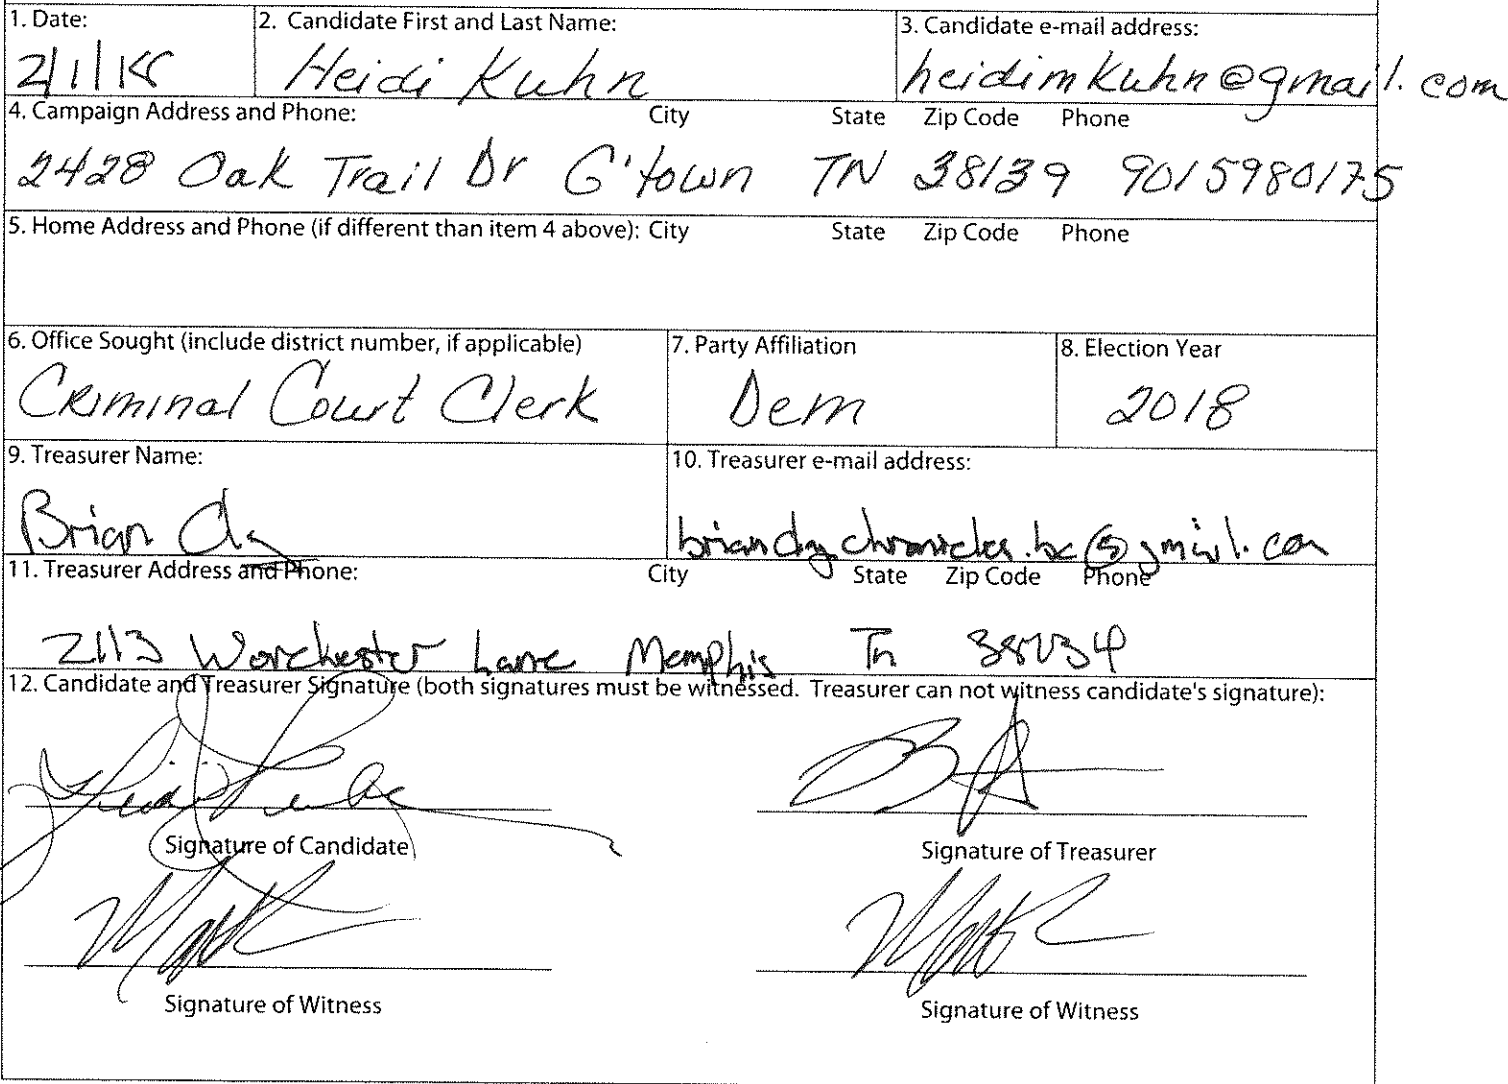 1. Date: 2. Candidate First and Last Name: 3. Candidate e-mail address:
2/1/18 Heidi Kuhn heidimkuhn@gmail.com
4. Campaign Address and Phone: City State Zip Code Phone
2428 Oak Trail Dr G'town TN 38139 9015980175
5. Home Address and Phone (if different than item 4 above): City State Zip Code Phone
6. Office Sought (include district number, if applicable) 7. Party Affiliation 8. Election Year
Criminal Court Clerk Dem 2018
9. Treasurer Name: 10. Treasurer e-mail address:
Brian
11. Treasurer Address and Phone: City State Zip Code Phone
2113 Worchester Lane Memphis Tn
12. Candidate and Treasurer Signature (both signatures must be witnessed. Treasurer can not witness candidate's signature):
Signature of Candidate Signature of Treasurer
Signature of Witness Signature of Witness